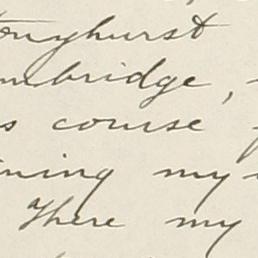 tonyhurst
mbridge,
s course
ining my
There my